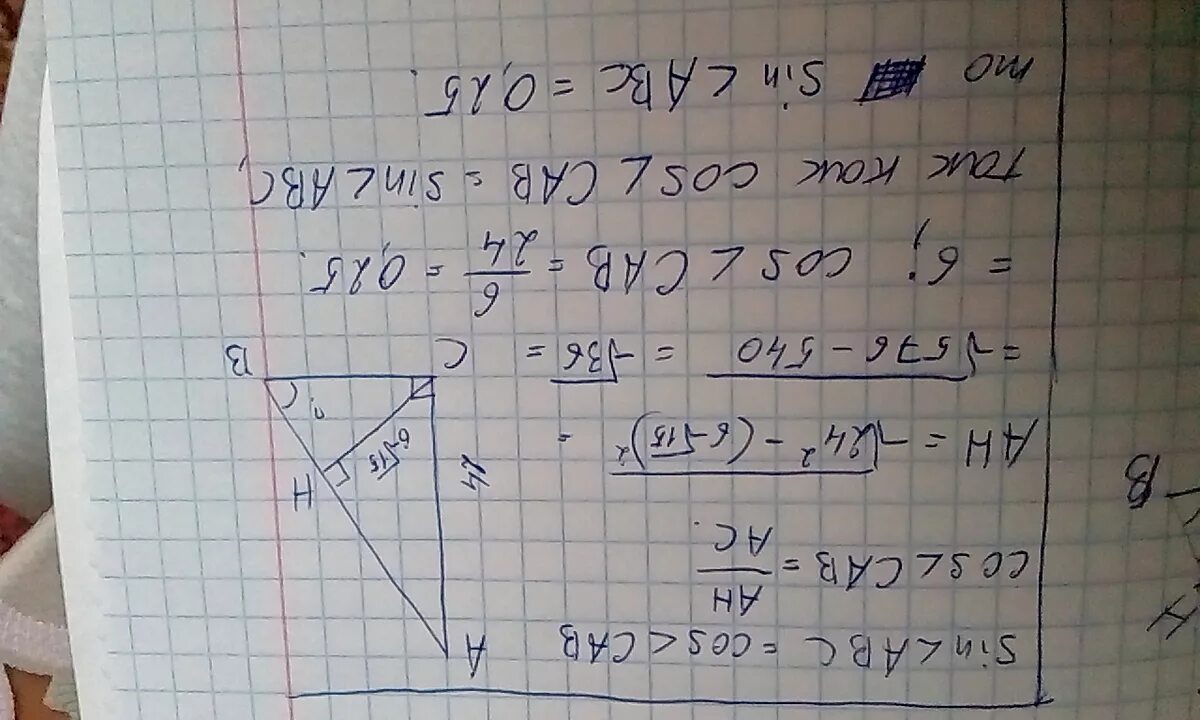 sin<ABC = cos<CAB
cos<CAB = AH/AC.
AH = √24² - (6√15)² =
= √576 - 540 = √36 =
= 6; cos<CAB = 6/24 = 0,25.
так как cos<CAB = sin<ABC,
то sin<ABC = 0,25.
A
24
H
6√15
?
C
B
B